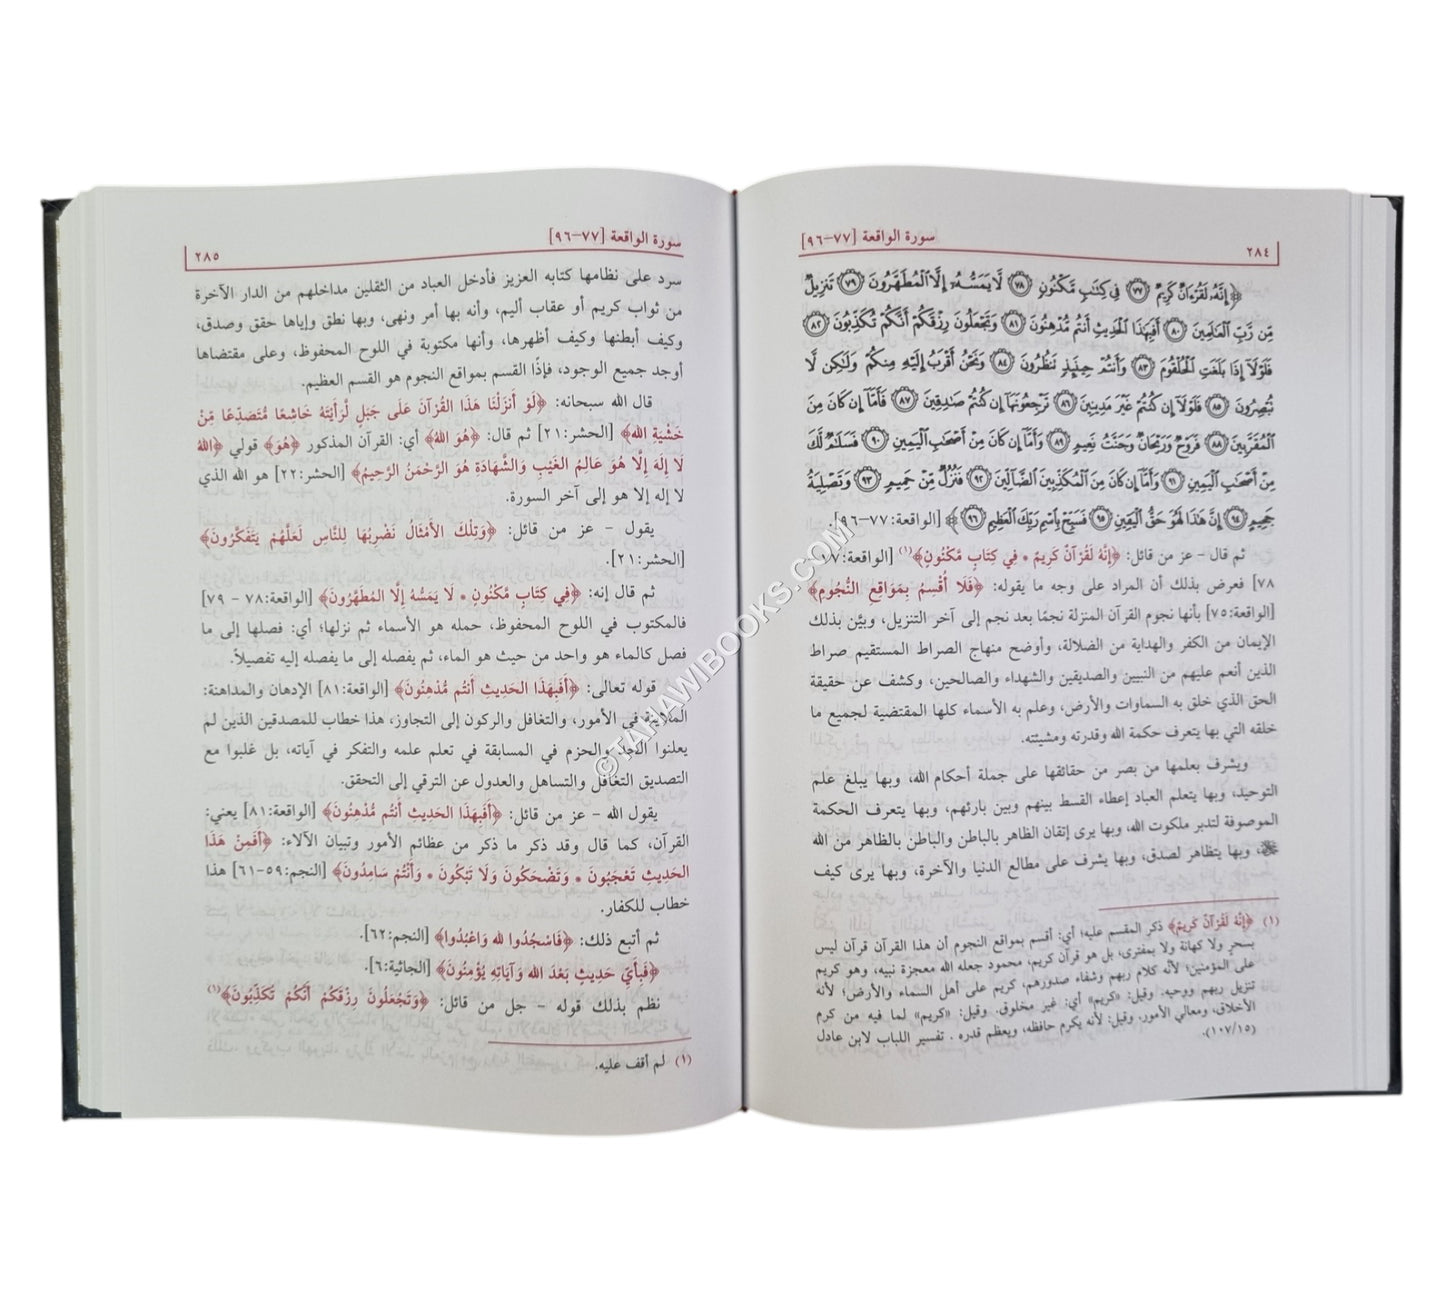 ٢٨٤
سورة الواقعة [٧٧–٩٦]
﴿إِنَّهُ لَقُرْءَانٌ كَرِيمٌ ٧٧ فِى كِتَٰبٍ مَّكْنُونٍ ٧٨ لَّا يَمَسُّهُۥٓ إِلَّا ٱلْمُطَهَّرُونَ ٧٩ تَنزِيلٌ
مِّن رَّبِّ ٱلْعَٰلَمِينَ ٨٠ أَفَبِهَٰذَا ٱلْحَدِيثِ أَنتُم مُّدْهِنُونَ ٨١ وَتَجْعَلُونَ رِزْقَكُمْ أَنَّكُمْ تُكَذِّبُونَ ٨٢
فَلَوْلَآ إِذَا بَلَغَتِ ٱلْحُلْقُومَ ٨٣ وَأَنتُمْ حِينَئِذٍ تَنظُرُونَ ٨٤ وَنَحْنُ أَقْرَبُ إِلَيْهِ مِنكُمْ وَلَٰكِن لَّا
تُبْصِرُونَ ٨٥ فَلَوْلَآ إِن كُنتُمْ غَيْرَ مَدِينِينَ ٨٦ تَرْجِعُونَهَآ إِن كُنتُمْ صَٰدِقِينَ ٨٧ فَأَمَّآ إِن كَانَ مِنَ
ٱلْمُقَرَّبِينَ ٨٨ فَرَوْحٌ وَرَيْحَانٌ وَجَنَّتُ نَعِيمٍ ٨٩ وَأَمَّآ إِن كَانَ مِنْ أَصْحَٰبِ ٱلْيَمِينِ ٩٠ فَسَلَٰمٌ لَّكَ
مِنْ أَصْحَٰبِ ٱلْيَمِينِ ٩١ وَأَمَّآ إِن كَانَ مِنَ ٱلْمُكَذِّبِينَ ٱلضَّآلِّينَ ٩٢ فَنُزُلٌ مِّنْ حَمِيمٍ ٩٣ وَتَصْلِيَةُ
جَحِيمٍ ٩٤ إِنَّ هَٰذَا لَهُوَ حَقُّ ٱلْيَقِينِ ٩٥ فَسَبِّحْ بِٱسْمِ رَبِّكَ ٱلْعَظِيمِ ٩٦﴾ [الواقعة:٧٧-٩٦].
ثم قال – عز من قائل: ﴿إِنَّهُ لَقُرْآنٌ كَرِيمٌ * فِي كِتَابٍ مَّكْنُونٍ﴾(١) [الواقعة:٧٧-
٧٨] فعرض بذلك أن المراد على وجه ما يقوله: ﴿فَلَا أُقْسِمُ بِمَوَاقِعِ النُّجُومِ﴾
[الواقعة:٧٥] بأنها نجوم القرآن المنزلة نجمًا بعد نجم إلى آخر التنزيل، وبيَّن بذلك
الإيمان من الكفر والهداية من الضلالة، وأوضح منهاج الصراط المستقيم صراط
الذين أنعم عليهم من النبيين والصديقين والشهداء والصالحين، وكشف عن حقيقة
الحق الذي خلق به السماوات والأرض، وعلم به الأسماء كلها المقتضية لجميع ما
خلقه التي بها يتعرف حكمة الله وقدرته ومشيئته.
ويشرف بعلمها من بصر من حقائقها على جملة أحكام الله، وبها يبلغ علم
التوحيد، وبها يتعلم العباد إعطاء القسط بينهم وبين بارئهم، وبها يتعرف الحكمة
الموصوفة لتدبر ملكوت الله، وبها يرى إتقان الظاهر بالباطن والباطن بالظاهر من الله
ﷻ، وبها يتظاهر لصدق، وبها يشرف على مطالع الدنيا والآخرة، وبها يرى كيف
(١) ﴿إِنَّهُ لَقُرْآنٌ كَرِيمٌ﴾ ذكر المقسم عليه؛ أي: أقسم بمواقع النجوم أن هذا القرآن قرآن ليس
بسحر ولا كهانة ولا بمفترى، بل هو قرآن كريم، محمود جعله الله معجزة نبيه، وهو كريم
على المؤمنين؛ لأنه كلام ربهم وشفاء صدورهم، كريم على أهل السماء والأرض؛ لأنه
تنزيل ربهم ووحيه. وقيل: «كريم» أي: غير مخلوق. وقيل: «كريم» لما فيه من كرم
الأخلاق، ومعالي الأمور. وقيل: لأنه يكرم حافظه، ويعظم قدره . تفسير اللباب لابن عادل
(١٠٧/١٥).
سورة الواقعة [٧٧–٩٦]
٢٨٥
سرد على نظامها كتابه العزيز فأدخل العباد من الثقلين مداخلهم من الدار الآخرة
من ثواب كريم أو عقاب أليم، وأنه بها أمر ونهى، وبها نطق وإياها حقق وصدق،
وكيف أبطنها وكيف أظهرها، وأنها مكتوبة في اللوح المحفوظ، وعلى مقتضاها
أوجد جميع الوجود، فإذًا القسم بمواقع النجوم هو القسم العظيم.
قال الله سبحانه: ﴿لَوْ أَنزَلْنَا هَذَا القُرْآنَ عَلَى جَبَلٍ لَّرَأَيْتَهُ خَاشِعًا مُّتَصَدِّعًا مِّنْ
خَشْيَةِ الله﴾ [الحشر:٢١] ثم قال: ﴿هُوَ اللهُ﴾ أي: القرآن المذكور ﴿هُوَ﴾ قولي ﴿اللهُ
لَا إِلَهَ إِلَّا هُوَ عَالِمُ الغَيْبِ وَالشَّهَادَةِ هُوَ الرَّحْمَنُ الرَّحِيمُ﴾ [الحشر:٢٢] هو الله الذي
لا إله إلا هو إلى آخر السورة.
يقول – عز من قائل: ﴿وَتِلْكَ الأَمْثَالُ نَضْرِبُهَا لِلنَّاسِ لَعَلَّهُمْ يَتَفَكَّرُونَ﴾
[الحشر:٢١].
ثم قال إنه: ﴿فِي كِتَابٍ مَّكْنُونٍ * لَا يَمَسُّهُ إِلَّا المُطَهَّرُونَ﴾ [الواقعة:٧٨ - ٧٩]
فالمكتوب في اللوح المحفوظ، حمله هو الأسماء ثم نزلها؛ أي: فصلها إلى ما
فصل كالماء هو واحد من حيث هو الماء، ثم يفصله إلى ما يفصله إليه تفصيلاً.
قوله تعالى: ﴿أَفَبِهَذَا الحَدِيثِ أَنتُم مُّدْهِنُونَ﴾ [الواقعة:٨١] الإدهان والمداهنة:
الملاينة في الأمور، والتغافل والركون إلى التجاوز، هذا خطاب للمصدقين الذين لم
يعلنوا الجد والحزم في المسابقة في تعلم علمه والتفكر في آياته، بل غلبوا مع
التصديق التغافل والتساهل والعدول عن الترقي إلى التحقق.
يقول الله – عز من قائل: ﴿أَفَبِهَذَا الحَدِيثِ أَنتُم مُّدْهِنُونَ﴾ [الواقعة:٨١] يعني:
القرآن، كما قال وقد ذكر ما ذكر من عظائم الأمور وتبيان الآلاء: ﴿أَفَمِنْ هَذَا
الحَدِيثِ تَعْجَبُونَ * وَتَضْحَكُونَ وَلَا تَبْكُونَ * وَأَنْتُمْ سَامِدُونَ﴾ [النجم:٥٩-٦١] هذا
خطاب للكفار.
ثم أتبع ذلك: ﴿فَاسْجُدُوا لله وَاعْبُدُوا﴾ [النجم:٦٢].
﴿فَبِأَيِّ حَدِيثٍ بَعْدَ الله وَآيَاتِهِ يُؤْمِنُونَ﴾ [الجاثية:٦].
نظم بذلك قوله – جل من قائل: ﴿وَتَجْعَلُونَ رِزْقَكُمْ أَنَّكُمْ تُكَذِّبُونَ﴾(١)
(١) لم أقف عليه.
©TAHAWIBOOKS.COM